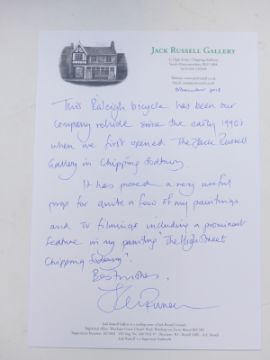 JACK RUSSELL GALLERY
This Raleigh bicycle has been our
company vehicle since the early 1990's
when we first opened The Jack Russell
Gallery in Chipping Sodbury
It has proved a very useful
prop for quite a few of my paintings
and TV filmings including a prominent
feature in my painting 'The High Street
Chipping Sodbury'.
Best wishes.